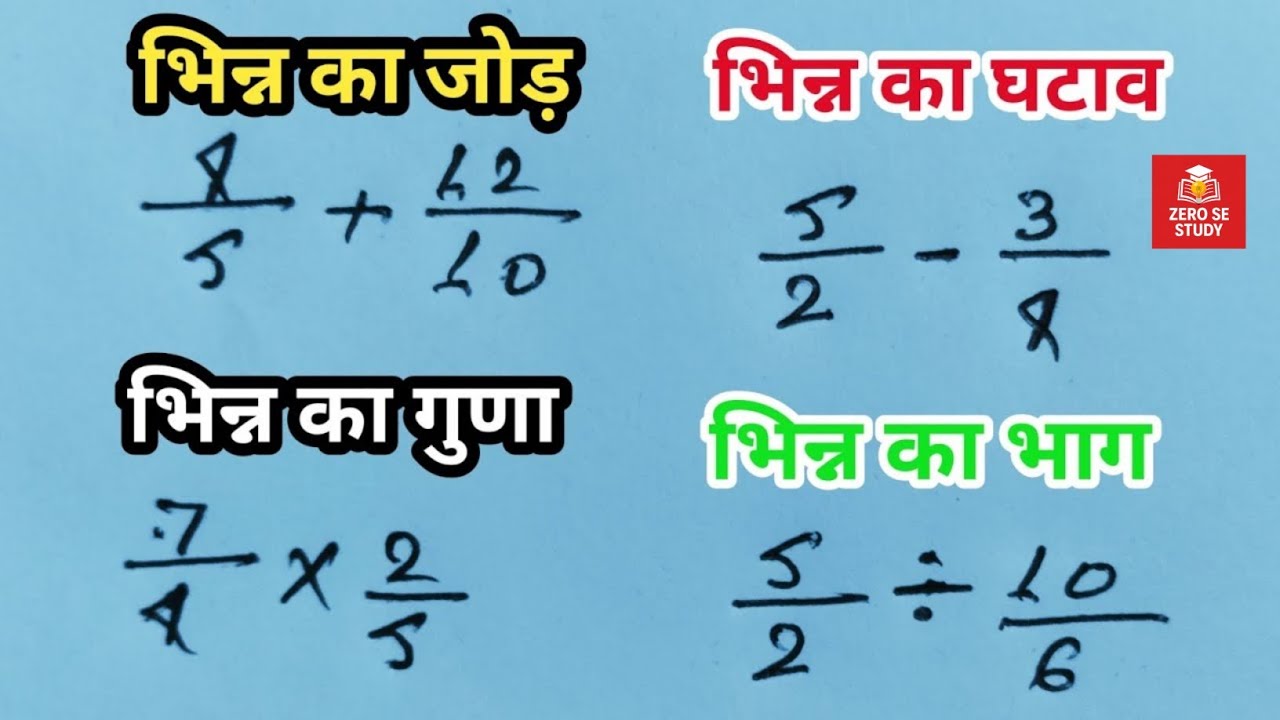 भिन्न का जोड़
4/5 + 12/10
भिन्न का घटाव
5/2 - 3/4
ZERO SE
STUDY
भिन्न का गुणा
7/4 × 2/5
भिन्न का भाग
5/2 ÷ 10/6